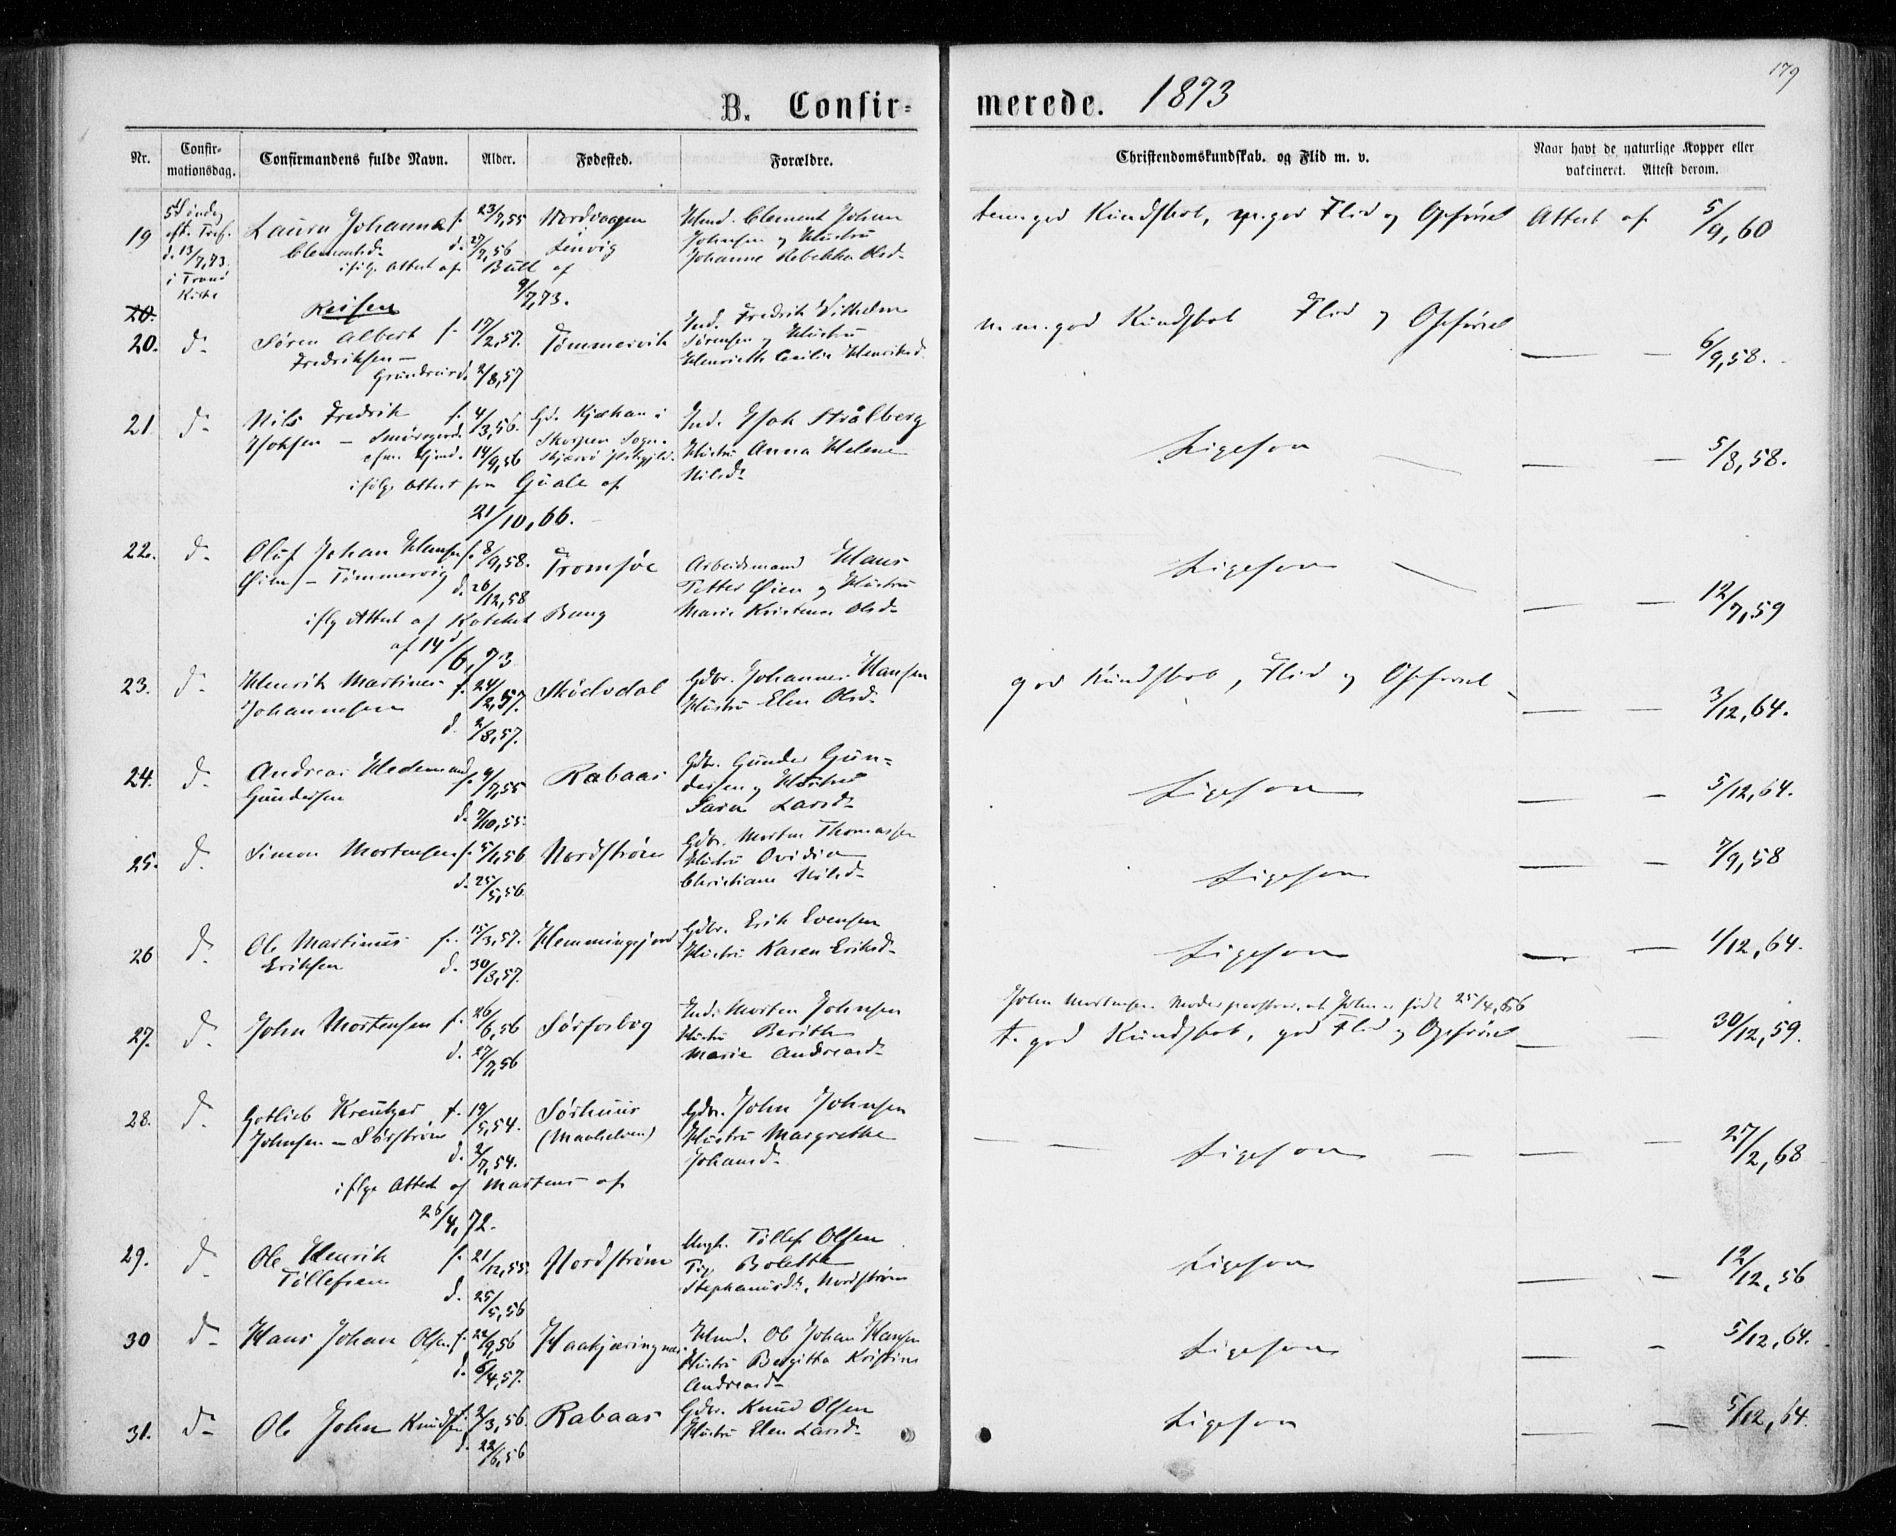 179
B. Confir-
merede. 1873
Nr.
Confir-
mationsdag.
Confirmandens fulde Navn.
Alder.
Fødested.
Forældre.
Christendomskundskab. og Flid m. v.
Naar havt de naturlige Kopper eller
vakcineret. Attest derom.
19
eft. Tref.
d. 13/7,73
i Tranø
Kirke
Laura Johanna f.
Clementsd. d.
ifølge Attest af Bull af
9/7,73.
23/7,55
27/7,56
Nordvaagen
Lenvig
Hmd. Clement Johan
Johnsen og Hustru
Johanne Rebekka Olsd.
god Kundskab, m. god Flid og Opførsel
Attest af 5/9,60
20.
20. d.
Reisen
Søren Albert f. 17/2,57.
Fredriksen –
2/8,57
Tømmervik
Ind. Fredrik Wilhelm
Sørensen og Hustru
Henriette Cecilie Henriksd.
m. m. god Kundskab Flid og Opførsel
— — 6/9,58.
21 d.
Nils Fredrik f. 4/3,56.
14/9,56
ifølge Attest fra Qvale af
21/10,66.
Gd. Kjækan i
Skorpen Sogn.
Ind. Isak Strålberg
Hustru Anna Helene
Nilsd.
Ligesom
— — 5/8,58.
22. d.
Oluf Johan Hansen f. 8/9,58.
Øien – Tømmervig d. 26/12,58
iflg Attest af Kateket Bang
af 14d/6,73
Tromsøe
Arbeidsmand Hans
Petter Øien og Hustru
Marie Kristense Olsd.
Ligesom
— — 12/7,59
23. d.
Henrik Martines f. 24/2,57.
Johannesen
d. 2/8,57.
Skødsdal
Gdbr. Johannes Hansen
Hustru Elen Olsd.
god Kundskab, Flid og Opførsel
— — 3/12,64.
24. d.
Andreas Hedemand f. 9/7,55
Gundersen
d. 7/10,55.
Rabaas
Gdbr. Gunder Gun-
dersen og Hustru
Sara Larsd.
Ligesom
— — 5/12,64.
25. d.
Simon Mortensen f. 5/1,56
d. 25/5,56
Nordstrøm
Gdbr. Morten Thomassen
Hustru Ovidia
Christiane Nilsd.
Ligesom
— — 7/9,58
26 d.
Ole Martinus f. 15/3,57.
Eriksen d. 30/8,57.
Hemmingsjord
Gdbr. Erik Evensen
Hustru Karen Eriksd.
Ligesom
— — 1/12,64.
27. d.
John Mortensen f. 26/6,56
d. 27/7,56
Sørforbog
Ind. Morten Johnsen
Hustru Berith
Marie Andreasd.
John Mortensens Moder paastaar, at John er født 25/4,56
t. god Kundskab, god Flid og Opførsel
— — 30/12,59.
28. d.
Gotlieb Kreutzer f. 19/5,54.
Johnsen – Sørstrøm
d. 2/7,54.
iflge Attest af Martens af
26/4,72.
Gdbr. John Johnsen
Hustru Margrethe
Johansd.
Ligesom
— — 27/2,68
29. d.
Ole Henrik f. 21/12,55.
Tollefsen
d. 25/5,56
Nordstrøm
Ungk. Tollef Olsen
Pig. Bolette
Stephanusd., Nordstrøm
Ligesom
— 12/12,56
30 d.
Hans Johan Olsen f. 22/9,56
d. 6/4,57.
Haakjæringnæs
Hmd. Ole Johan Hansen
Hustru Bergitta Kristine
Andreasd.
Ligesom
— — 5/12,64.
31. d.
Ole John Knudsen f. 2/3,56.
d. 22/6,56
Rabaas
Gdbr. Knud Olsen
Hustru Elen Larsd.
Ligesom
— — 5/12,64.